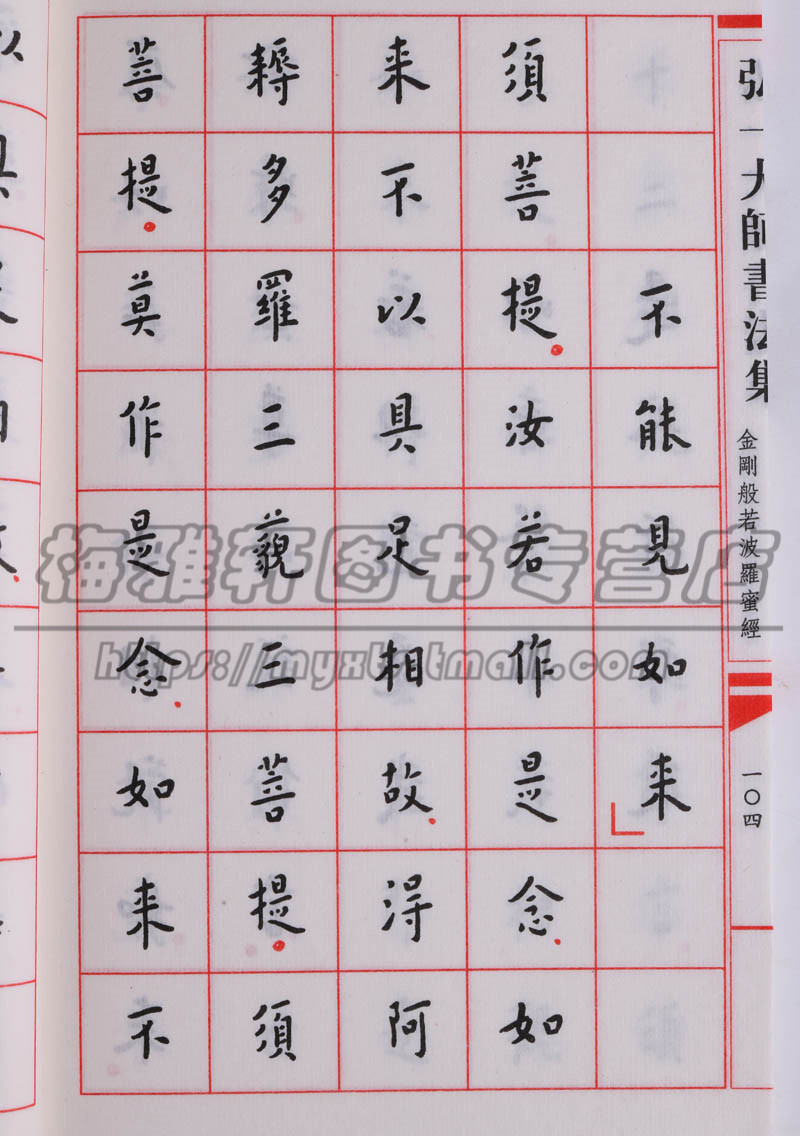 弘一大師書法集
金剛般若波羅蜜經
一〇四
不能見如来
須菩提汝若作是念如
来不以具足相故得阿
耨多羅三藐三菩提須
菩提莫作是念如来不
梅雅轩图书专营店